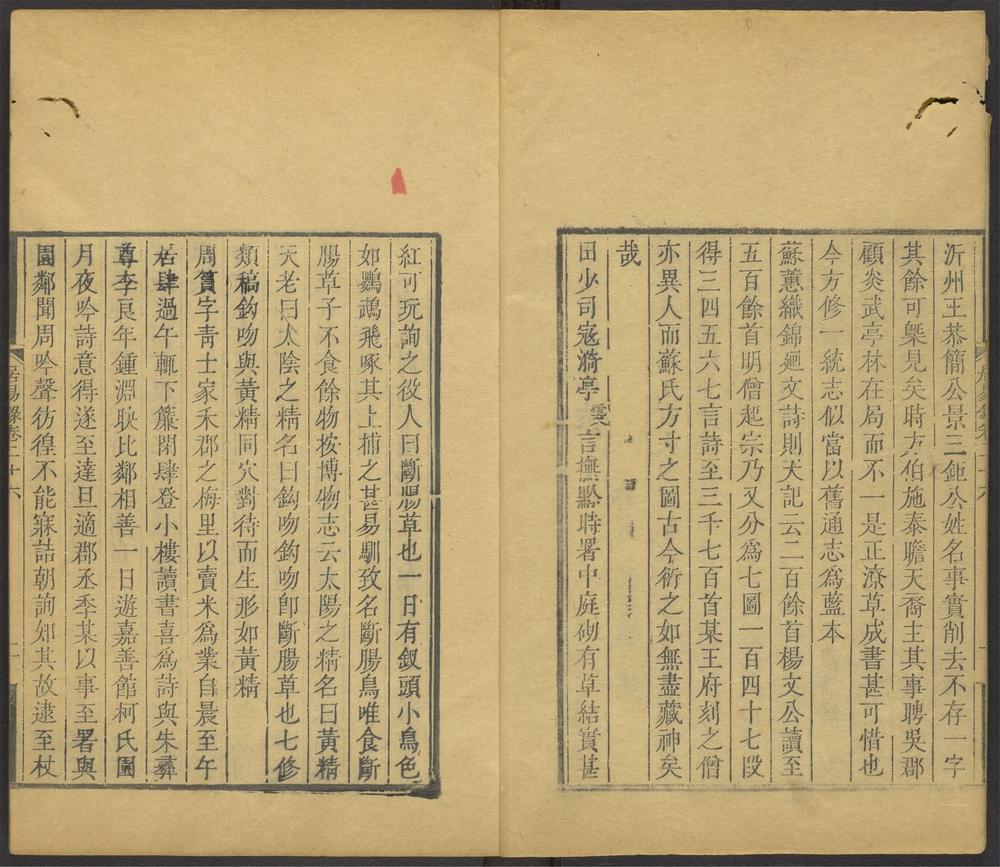 沂州王恭簡公景三鉅公姓名事實削去不存一字
其餘可槩見矣時方伯施泰瞻天裔主其事聘吳郡
顧炎武亭林在局而不一是正潦草成書甚可惜也
今方修一統志似當以舊通志爲藍本
蘇蕙織錦廻文詩則天記云二百餘首楊文公讀至
五百餘首明僧起宗乃又分爲七圖一百四十七段
得三四五六七言詩至三千七百首某王府刻之僧
亦異人而蘇氏方寸之圖古今衍之如無盡藏神矣
哉
田少司寇漪亭雯言撫黔時署中庭砌有草結實甚
紅可玩詢之役人曰斷腸草也一日有釵頭小鳥色
如鸚鵡飛啄其上捕之甚易馴致名斷腸鳥唯食斷
腸草子不食餘物按博物志云太陽之精名曰黃精
天老曰太陰之精名曰鈎吻鈎吻卽斷腸草也七修
類稿鈎吻與黃精同穴對待而生形如黃精
周篔字靑士家禾郡之梅里以賣米爲業自晨至午
居肆過午輒下簾閉肆登小樓讀書喜爲詩與朱彝
尊李良年鍾淵映比鄰相善一日遊嘉善館柯氏園
月夜吟詩意得遂至達旦適郡丞季某以事至署與
園鄰聞周吟聲彷徨不能寐詰朝詢知其故逮至杖
居易錄卷二十六
二